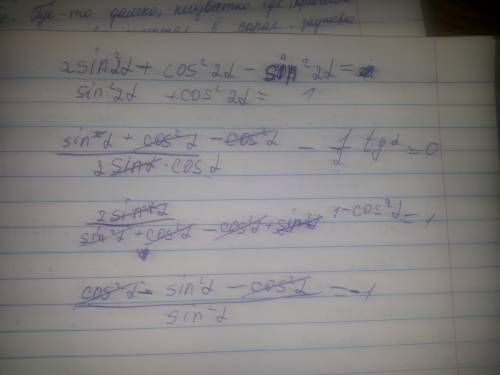 Где-то далеко, неизвестно где,
в сарае
2sin²2α + cos²2α - sin²2α =
sin²2α + cos²2α = 1
sin²α + cos²α - cos²α / 2sinα · cosα - 1/2 tgα = 0
2sin²α / sin²α + cos²α - cos²α + sin²α 1-cos²α = 1
cos²α - sin²α - cos²α / sin²α = -1